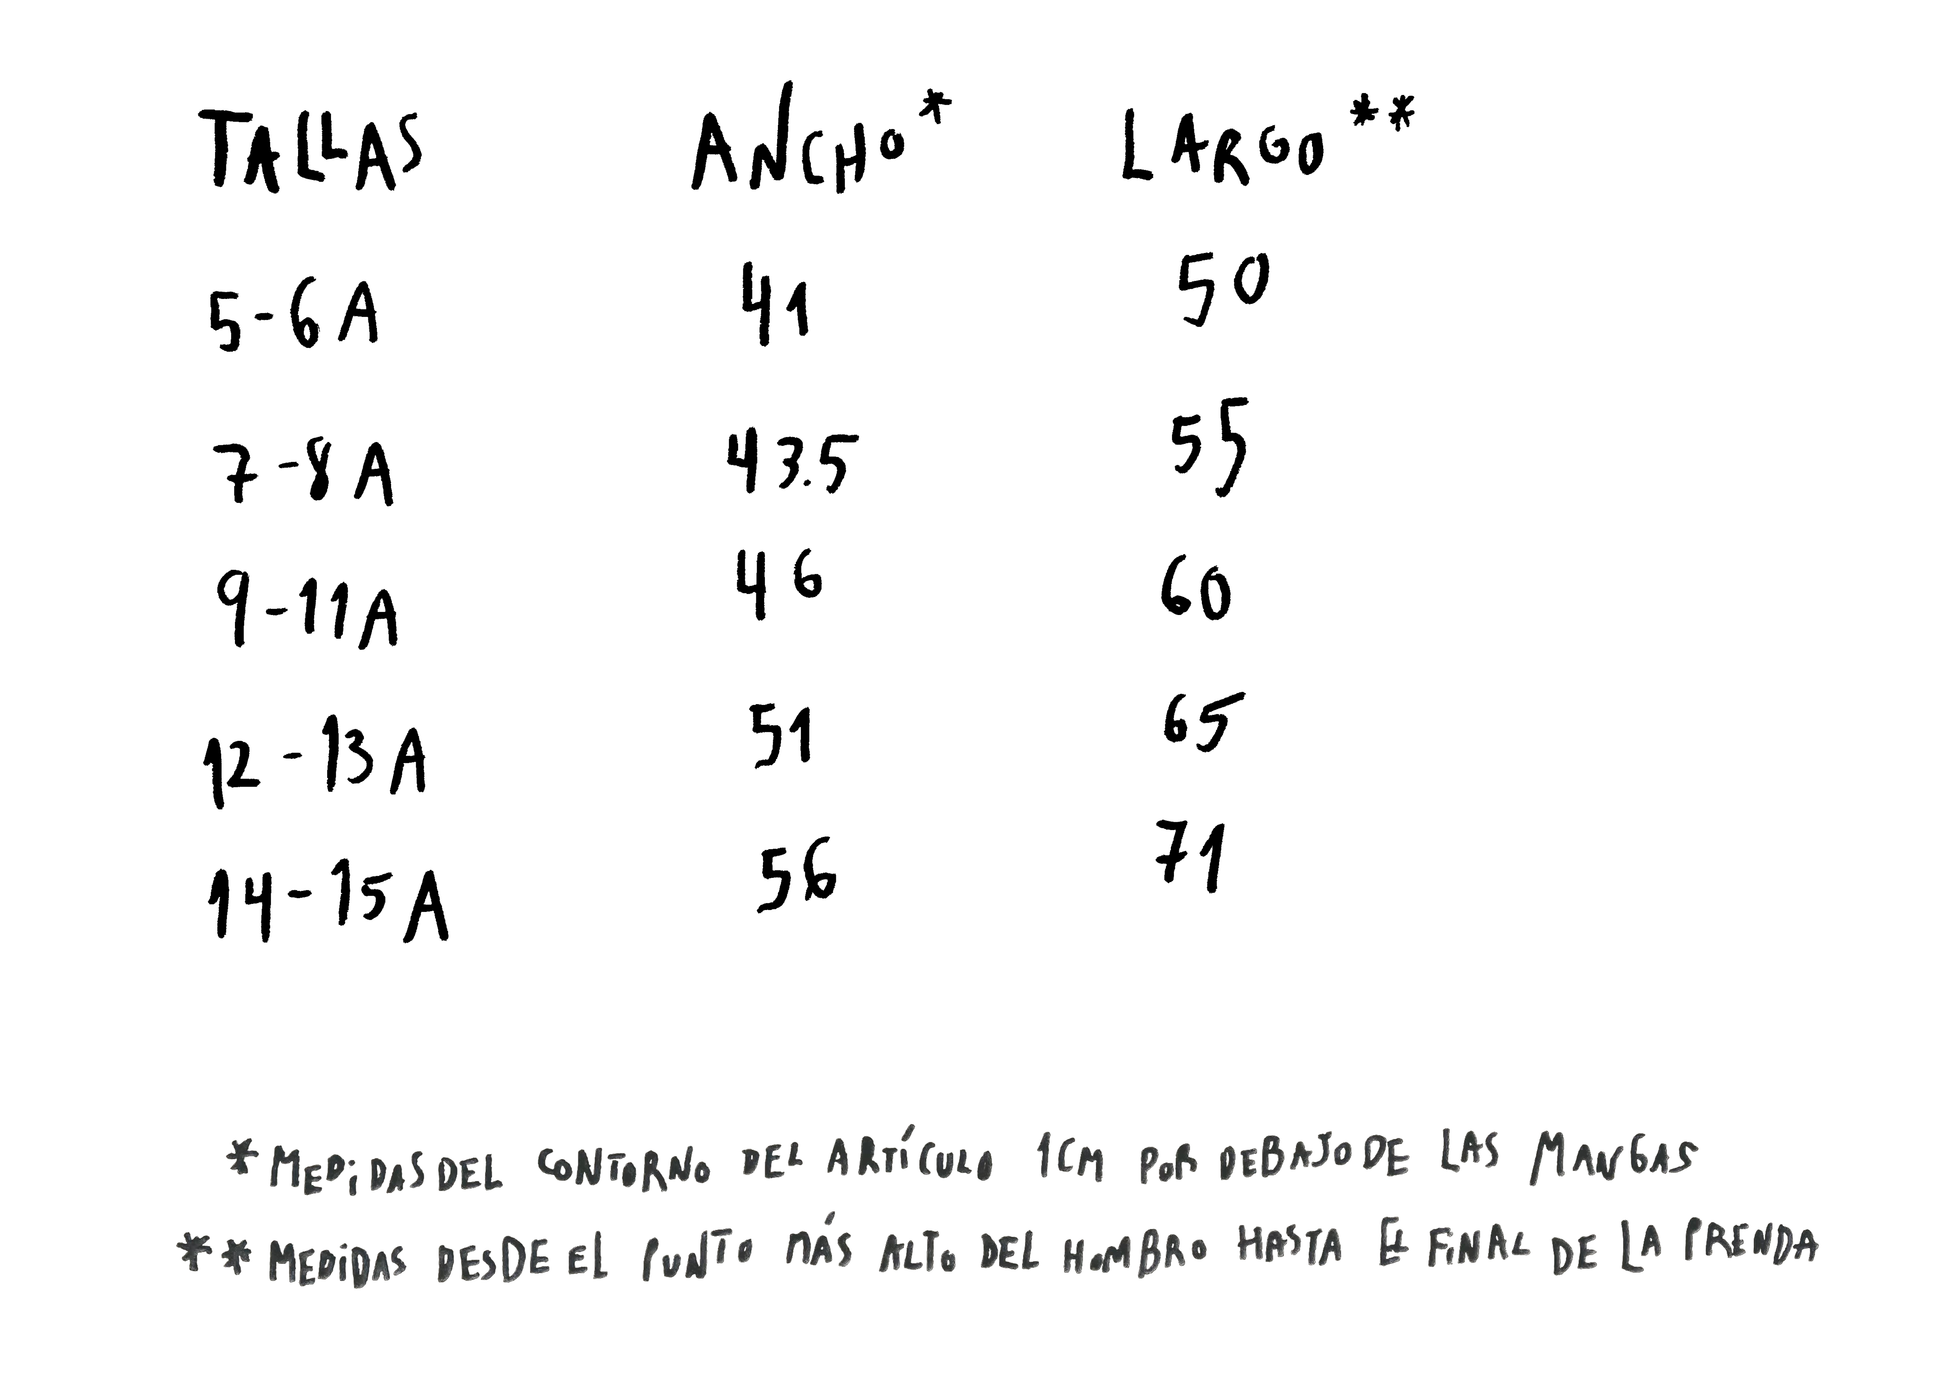 TALLAS ANCHO* LARGO**
5-6A 41 50
7-8A 43.5 55
9-11A 46 60
12-13A 51 65
14-15A 56 71
*MEDiDAS DEL CONTORNO DEL ARTÍCULO 1CM POR DEBAJO DE LAS MANGAS
**MEDiDAS DESDE El PUNTO MÁS ALTO DEL HOMBRO HASTA EL FiNAL DE LA PRENDA